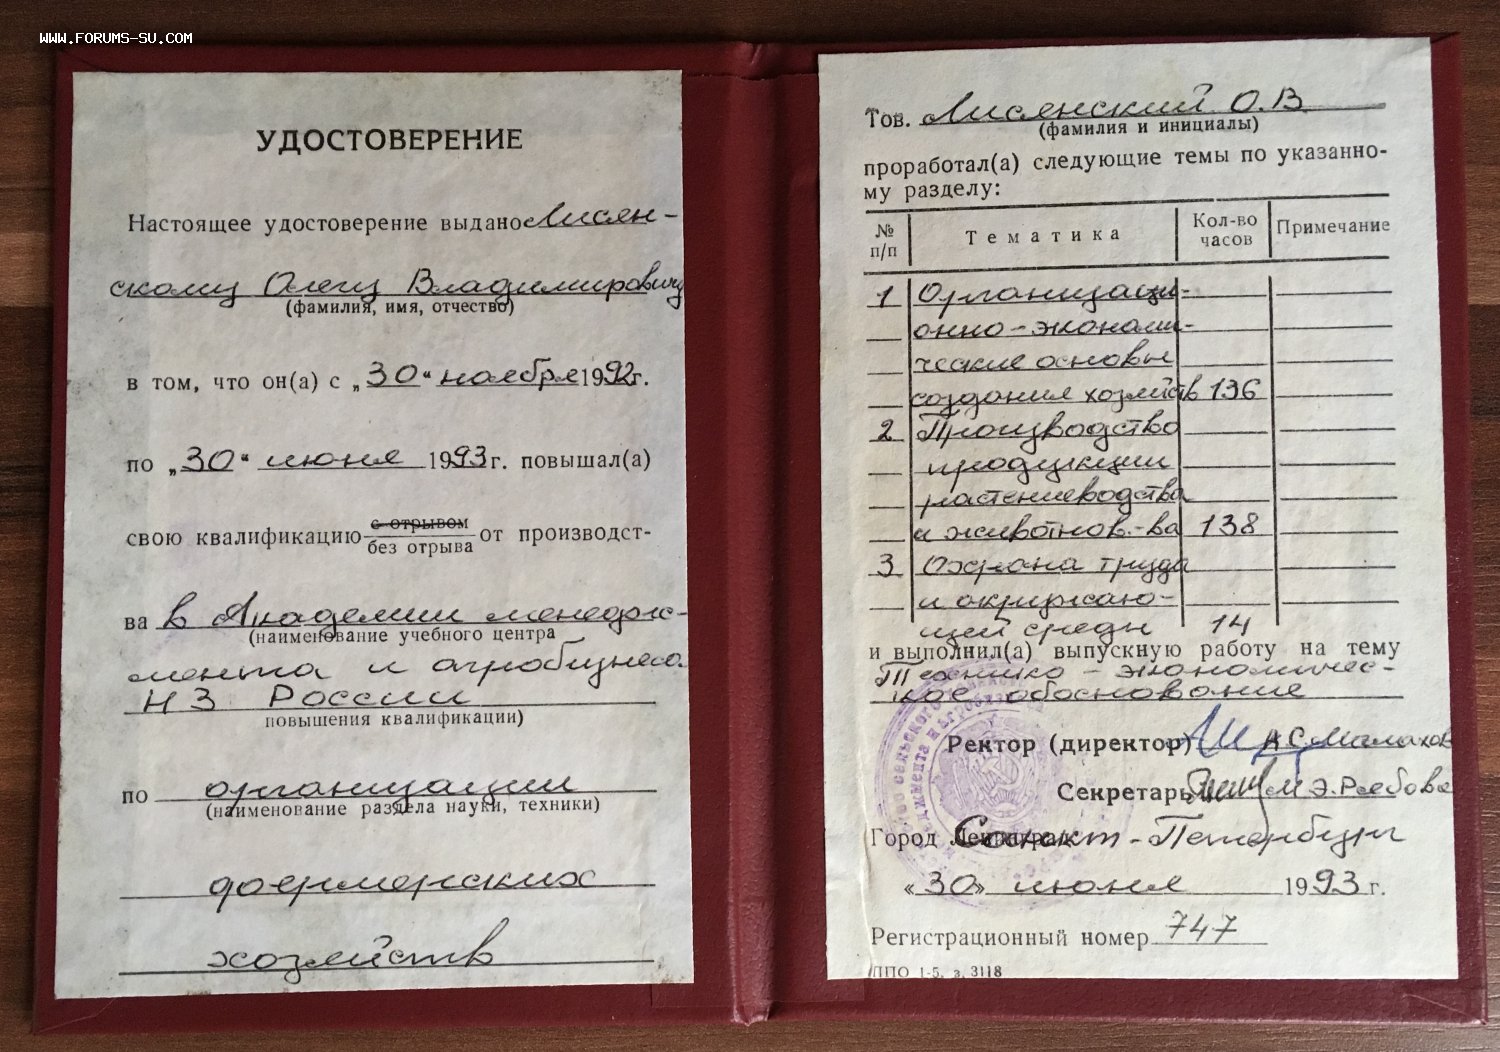 www.forums-su.com
УДОСТОВЕРЕНИЕ
Настоящее удостоверение выдано Лисян-
скому Олегу Владимировичу
(фамилия, имя, отчество)
в том, что он(а) с „30" ноября 1992г.
по „30" июня 1993г. повышал(а)
свою квалификацию с отрывом
без отрыва от производст-
ва в Академии менедж-
(наименование учебного центра
мента и агробизнеса
НЗ России
повышения квалификации)
по организации
(наименование раздела науки, техники)
фермерских
хозяйств
Тов. Лисянский О.В
(фамилия и инициалы)
проработал(а) следующие темы по указанно-
му разделу:
№ п/п Тематика Кол-во часов Примечание
1 Организаци-
онно-экономи-
ческие основы
создания хозяйств 136
2 Производство
продукции
растениеводства
и животнов.-ва 138
3 Охрана труда
и окружаю-
щей среды 14
и выполнил(а) выпускную работу на тему
Технико-экономичес-
кое обоснование
Ректор (директор) А С Малахов
Секретарь М.Э.Рябова
Город Санкт-Петербург
«30» июня 1993 г.
Регистрационный номер 747
ЛПО 1-5. з. 3118